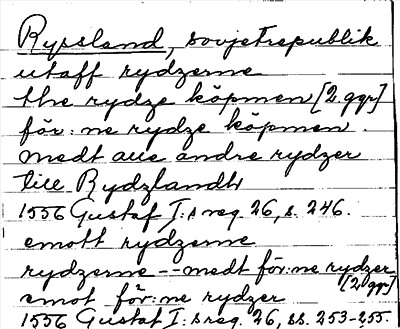 Ryssland, sovjetrepublik
utaff rydzerne
the rydze köpmen [2 ggr]
för:ne rydze köpmen.
medt alle andre rydzer
till Rydzlandtt
1556 Gustaf I:s reg. 26, s. 246.
emott rydzerne
rydzerne -- medt för:ne rydzer
emot för:ne rydzer [2 ggr]
1556 Gustaf I:s reg. 26, ss. 253-255.